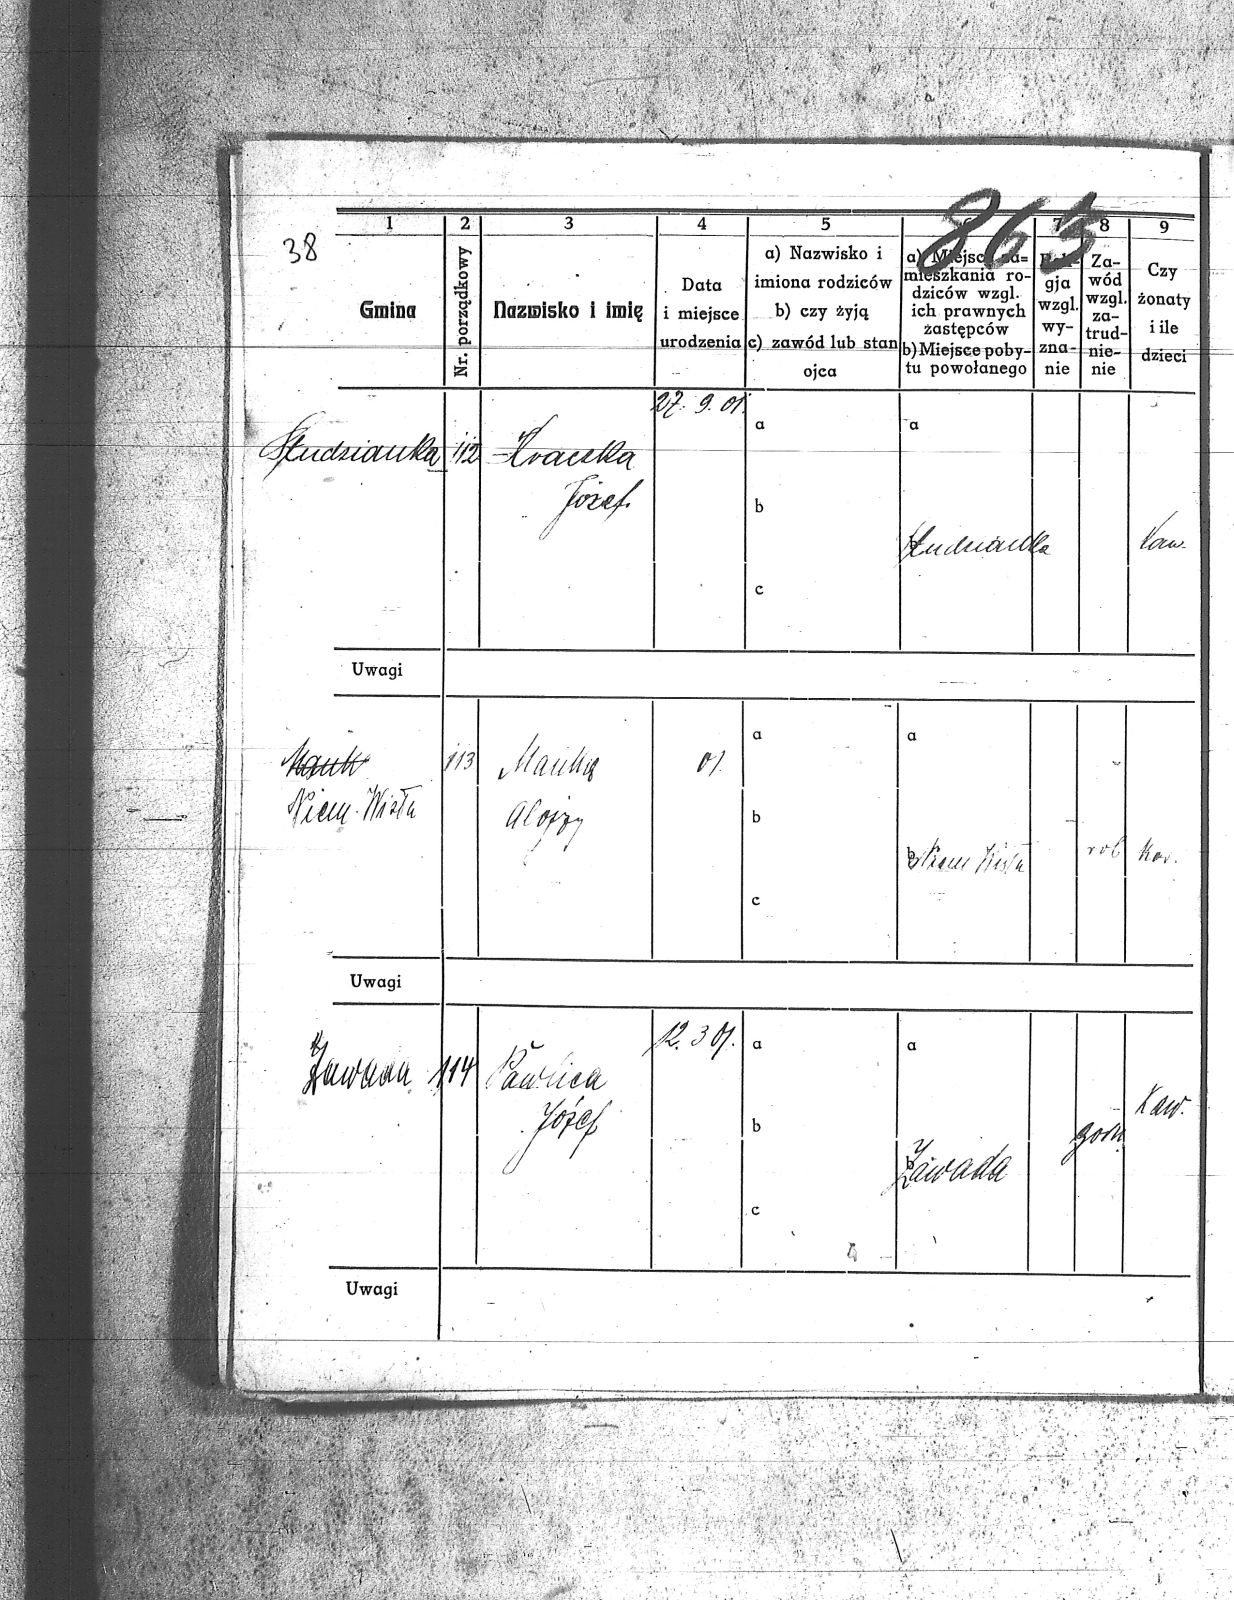 38
863
1
2
3
4
5
6
7
8
9
Gmina
Nr. porządkowy
Nazwisko i imię
Data
i miejsce
urodzenia
a) Nazwisko i
imiona rodziców
b) czy żyją
c) zawód lub stan
ojca
a) Miejsce za=
mieszkania ro-
dziców wzgl.
ich prawnych
zastępców
b) Miejsce poby-
tu powołanego
Reli-
gja
wzgl.
wy-
zna-
nie
Za-
wód
wzgl.
za-
trud-
nie-
nie
Czy
żonaty
i ile
dzieci
27. 9. 01.
Studzianka 112
Józef
a
b
c
a
b Studzianka
Kaw.
Uwagi
Niem. Wisła
113
Alojzy
01.
a
b
c
a
b Niem Wisła
rob
Kaw.
Uwagi
Zawada 114
Pawlica
Józef
12. 3 01.
a
b
c
a
b Zawada
górn.
Kaw.
Uwagi